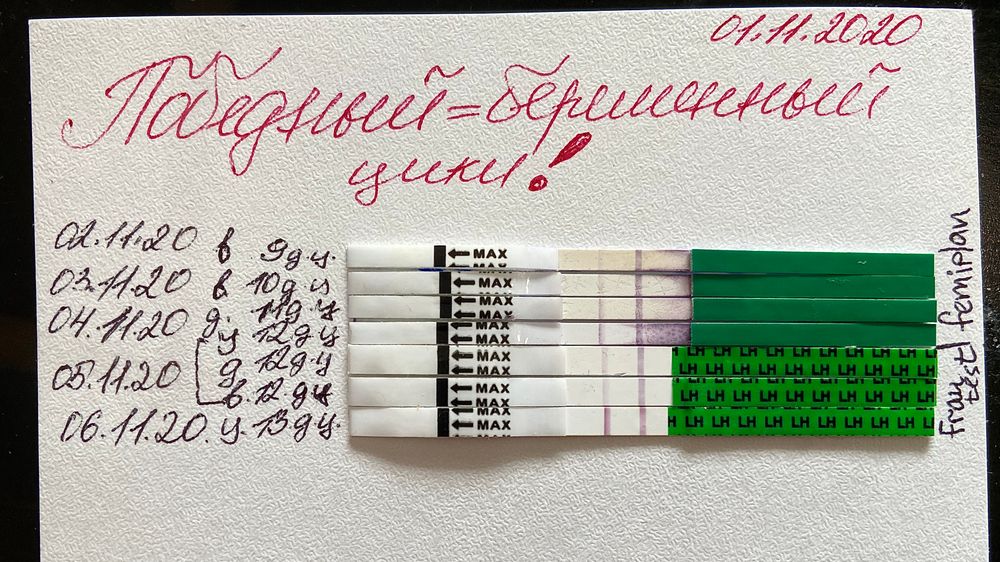 01.11.2020
Победный = беременный
цикл!
02.11.20 в 9дц.
03.11.20 в 10дц
д. 11дц
04.11.20 у 12дц
д 12дц
05.11.20 в. 12дц
06.11.20. у. 13дц.
MAX
MAX
MAX
MAX
MAX
MAX
MAX
LH LH LH LH LH LH LH LH LH LH
LH LH LH LH LH LH LH LH LH LH
LH LH LH LH LH LH LH LH LH LH
Frautest femiplan